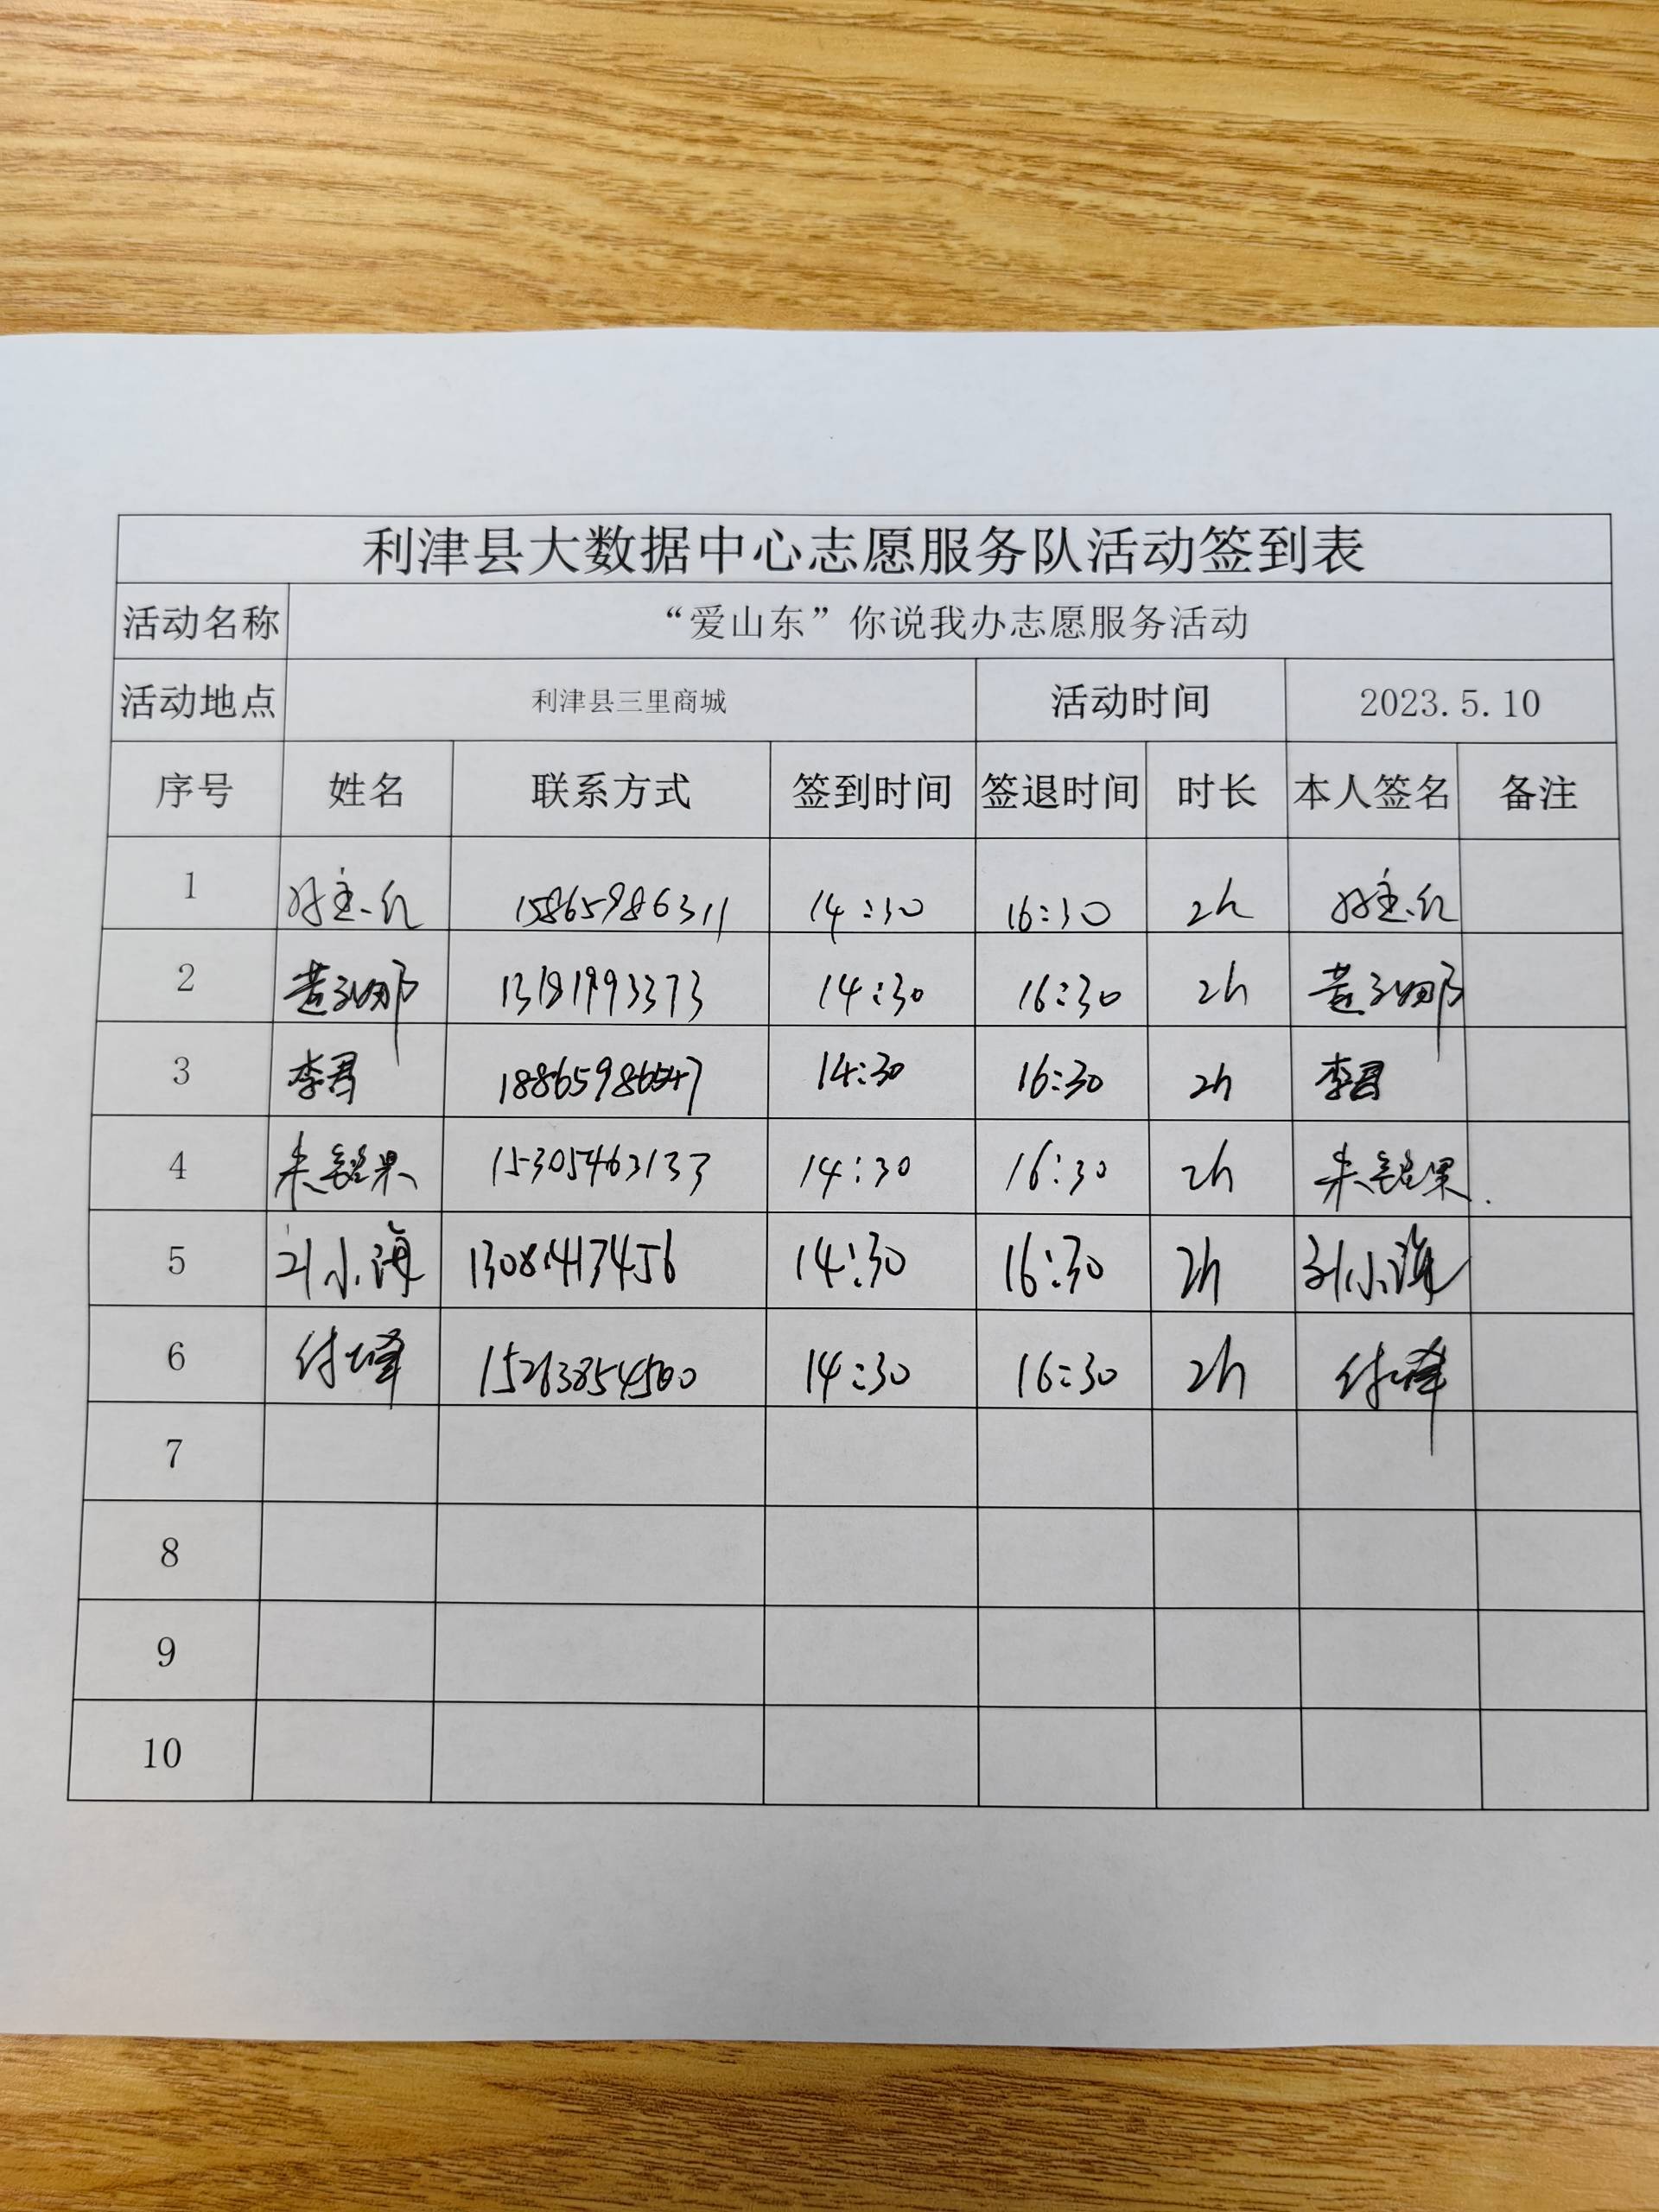 利津县大数据中心志愿服务队活动签到表
活动名称 “爱山东”你说我办志愿服务活动
活动地点 利津县三里商城 活动时间 2023.5.10
序号 姓名 联系方式 签到时间 签退时间 时长 本人签名 备注
1 15865986311 14:30 16:30 2h
2 14:30 16:30 2h
3 李君 14:30 16:30 2h 李君
4 朱铭果 15305463133 14:30 16:30 2h 朱铭果
5 小海 14:30 16:30 2h 小海
6 付 15263854500 14:30 16:30 2h 付
7
8
9
10